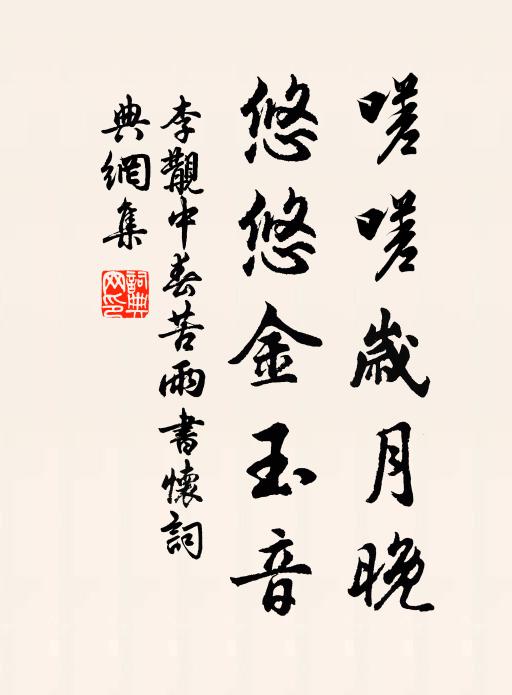 嗟嗟歲月晚
悠悠金玉音
李觀中春苦雨書懷詞
典網集
詞典網印